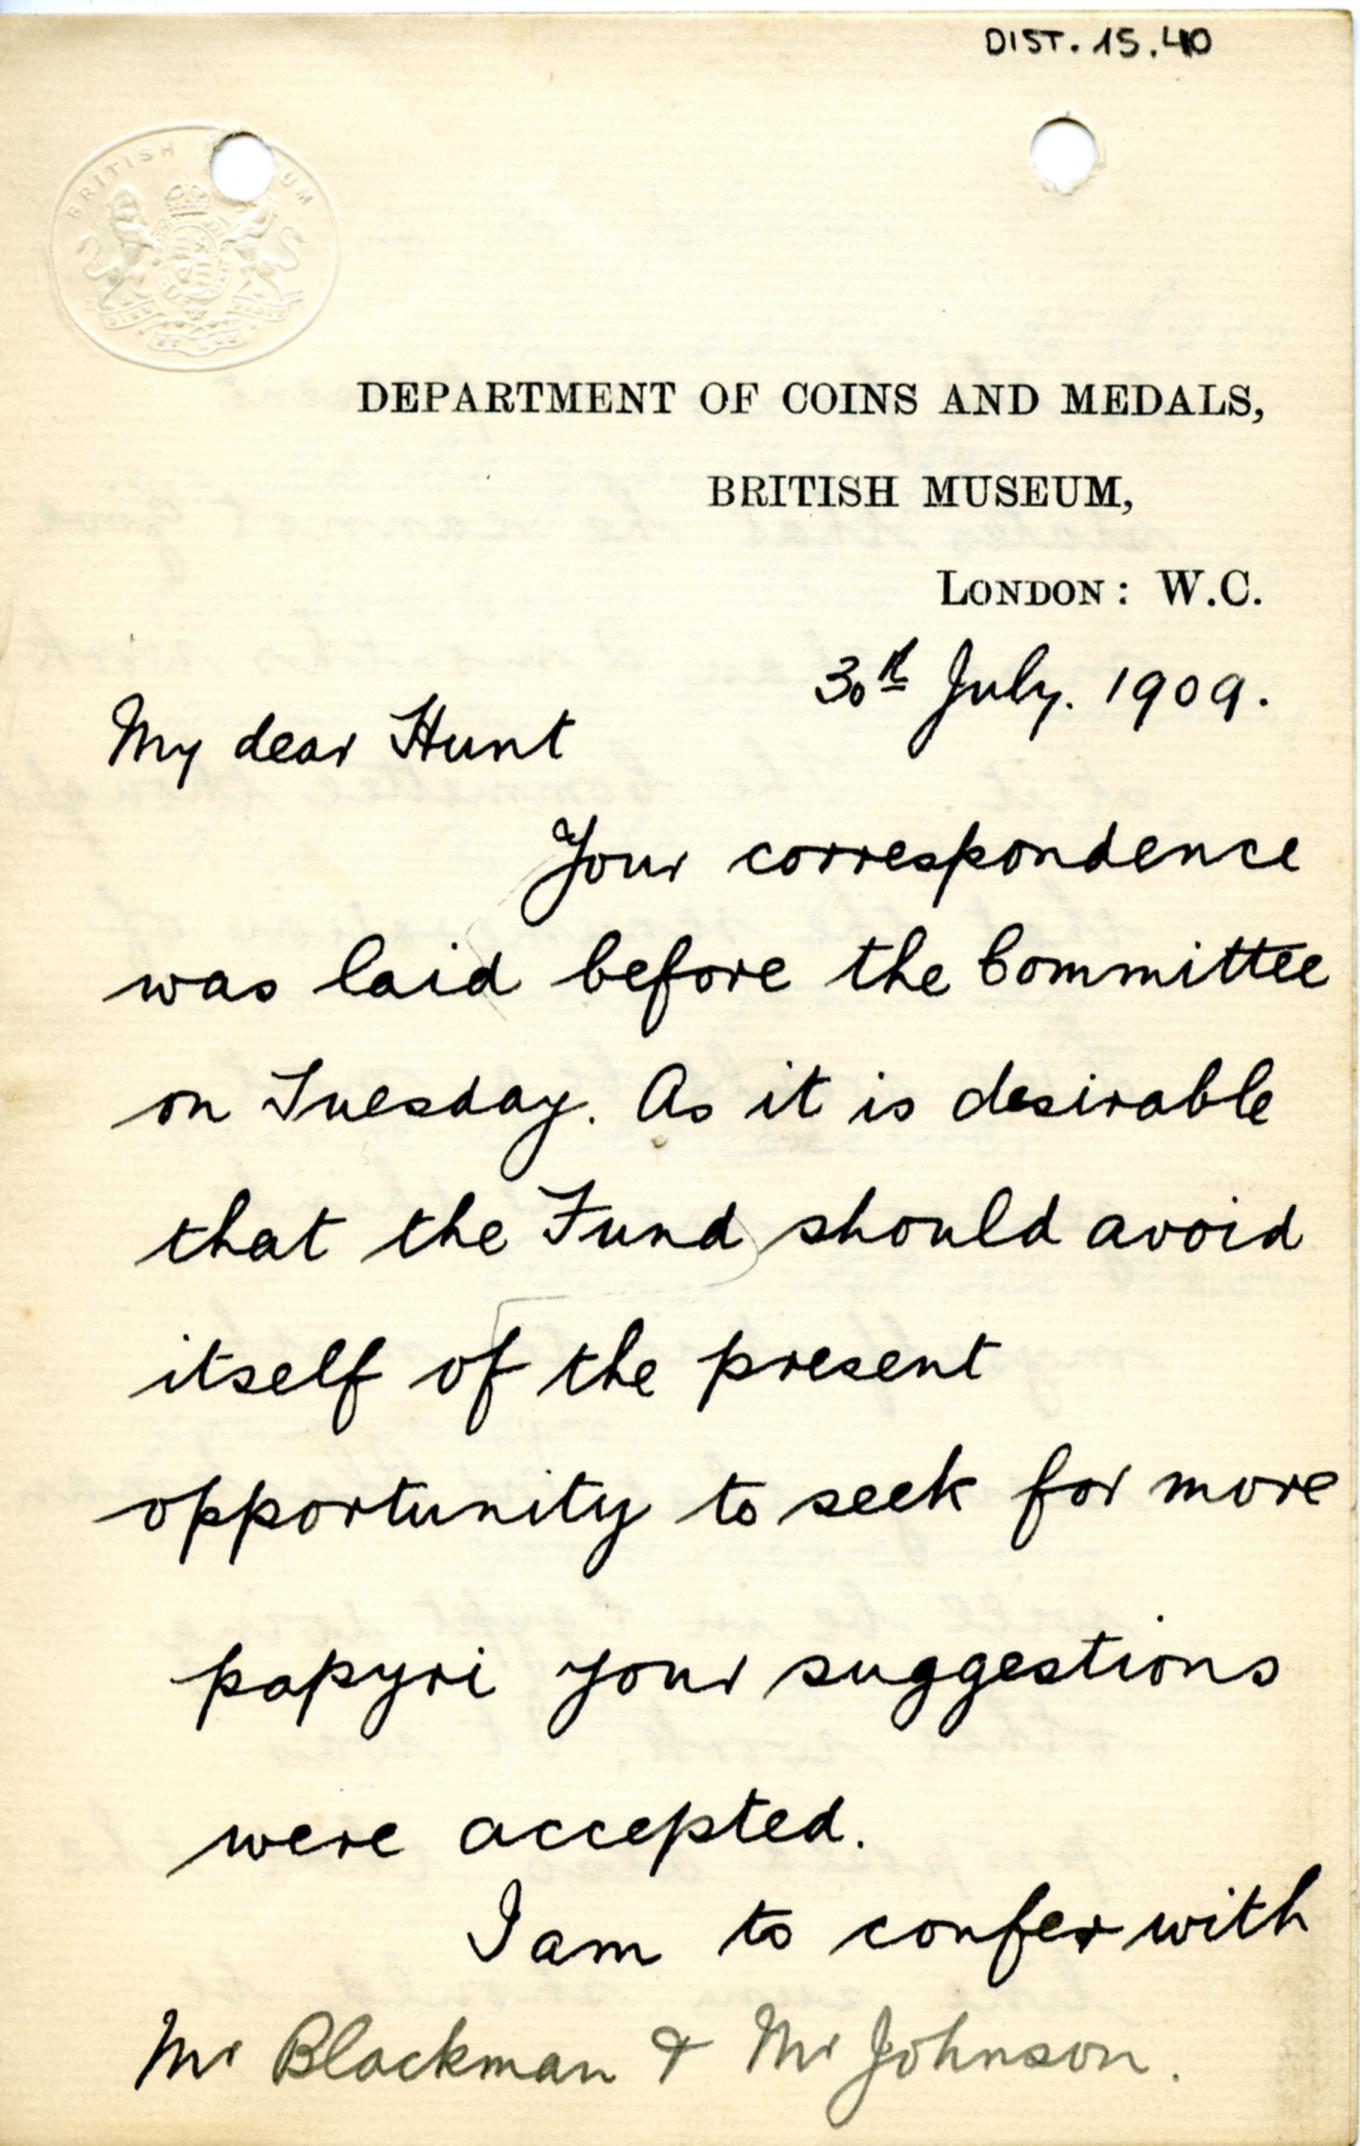 DIST. 15.40
BRITISH UM
DEPARTMENT OF COINS AND MEDALS,
BRITISH MUSEUM,
LONDON: W.C.
30th July. 1909.
My dear Hunt
Your correspondence
was laid before the Committee
on Tuesday. As it is desirable
that the Fund should avoid
itself of the present
opportunity to seek for more
papyri your suggestions
were accepted.
I am to confer with
Mr Blackman & Mr Johnson.